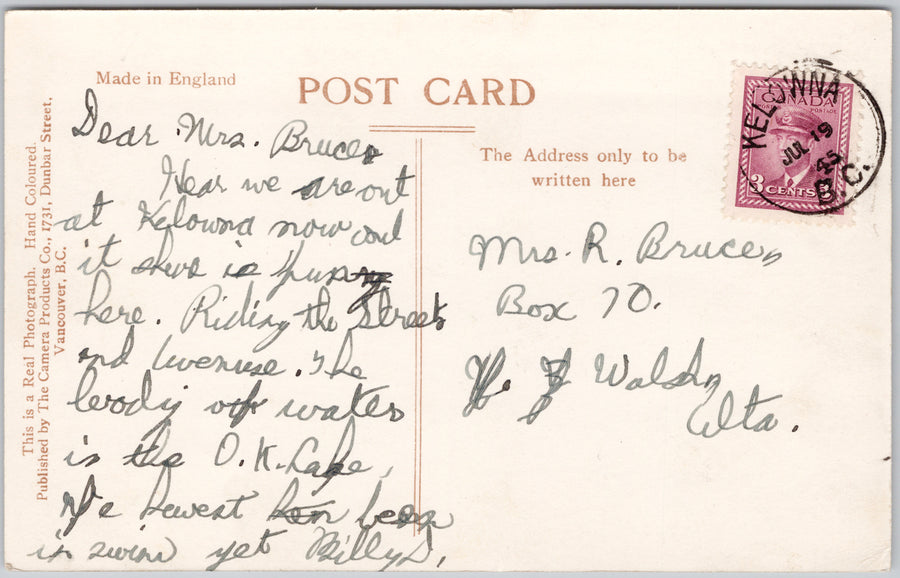 Made in England
POST CARD
This is a Real Photograph. Hand Coloured.
Published by The Camera Products Co., 1731, Dunbar Street,
Vancouver, B.C.
The Address only to be
written here
KELOWNA
JUL 19
45
B.C.
CANADA
POSTAGE
3 CENTS
Dear Mrs. Bruce
Hear we are out
at Kelowna now and
it shure is
here. Riding the Streets
and Avenuse. The
boody of water
is the O.K. Lake,
We hevent been
in swim yet Billy D,
Mrs. R. Bruce,
Box 70.
Walsh
Alta.